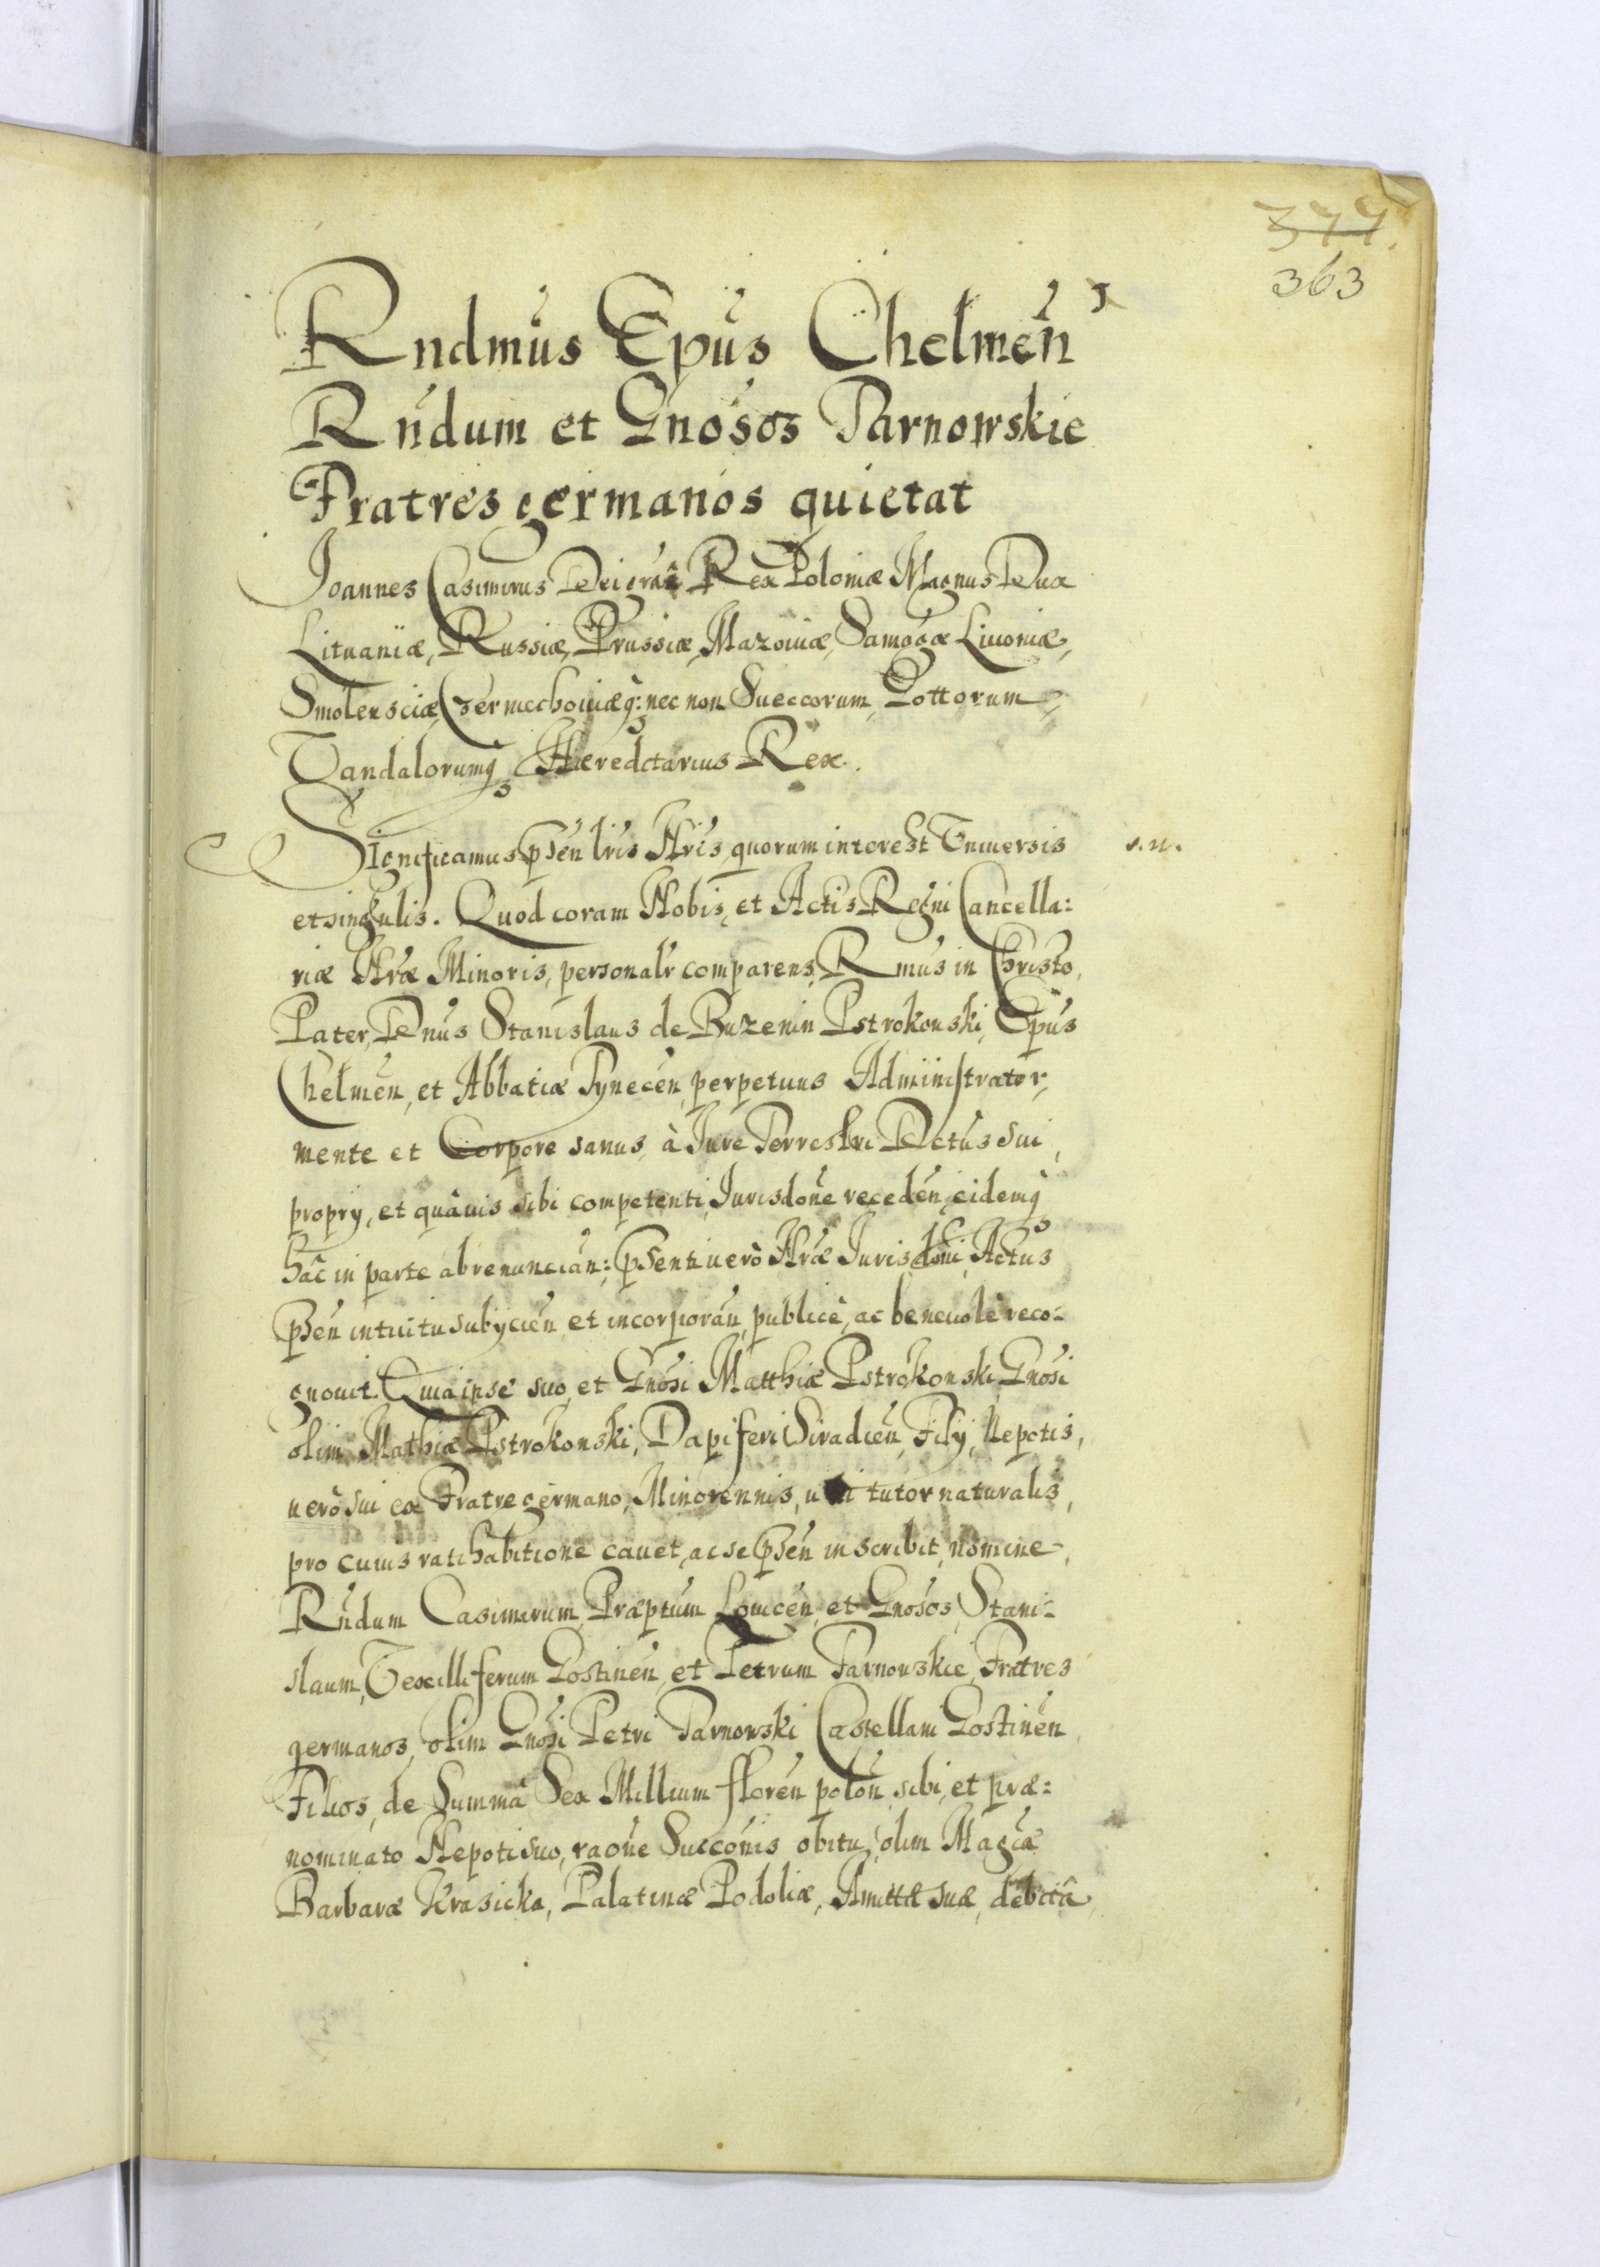 377.
363
Rndmus Epus Chelmen
Rndum et Gnosos Tarnowskie
Fratres germanos quietat
Joannes Casimirus Dei grãa Rex Poloniæ Magnus Dux
Lituaniæ, Russiæ, Prussiæ, Mazoviæ, Samogæ Livoniæ,
Smolensciæ, Czerniechoviæq: nec non Sueccorum, Gottorum,
Vandalorumq Hæredetarius Rex.
Significamus psen lris Nris, quorum interest Universis
s. n.
et singulis. Quod coram Nobis, et Actis Regni Cancella:
riæ Nræ Minoris, personalr comparens, Rmus in Christo,
Pater, Dnus Stanislaus de Buzenin Pstrokonski, Epus
Chelmen, et Abbatiæ Tynecen, perpetuus Administrator,
mente et Corpore sanus, à Jure Terrestri Dctus sui,
propry, et quâuis sibi competenti Jurisdone receden, eidemq
hâc in parte abrenuncian: psenti uerò Nræ Jurisdoni, Actus
psen intuitu subycien, et incorporan, publicè, ac beneuolè reco-
gnouit. Quia ipse suo, et Gnosi Matthiæ Pstrokonski, Gnosi
olim Mathiæ Pstrokonski, Dapiferi Siradien, Fily, Nepotis,
uerò sui ex Fratre germano, Minorennis, uti tutor naturalis,
pro cuius ratihabitione cauet, ac se psen inscribit, nomine,
Rndum Casimirum, Præptum Lovicen, et Gnosos, Stani-
slaum, Vexilliferum Gostinen, et Petrum Tarnowskie, Fratres
germanos, olim Gnosi Petri Tarnowski Castellani Gostinen
Filios, de Summâ Sex Millium floren polon, sibi, et præ:
nominato Nepoti suo, raone Succonis obitu, olim Magcæ
Barbaræ Krasicka, Palatinæ Podoliæ, Amittæ suæ, debitâ,